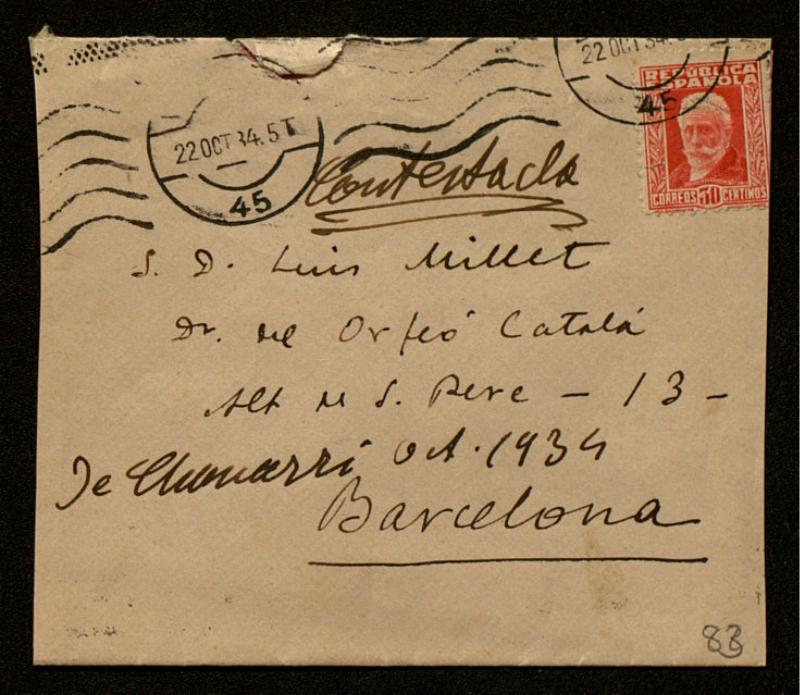 22 OCT 34. 5 T
45
22 OCT 34.
45
REPÚBLICA
ESPAÑOLA
CORREOS 30 CENTIMOS
Contestada
S. D. Luis Millet
Dr. del Orfeó Catalá
Alt de S. Pere - 13 -
De Chavarri Oct. 1934
Barcelona
83